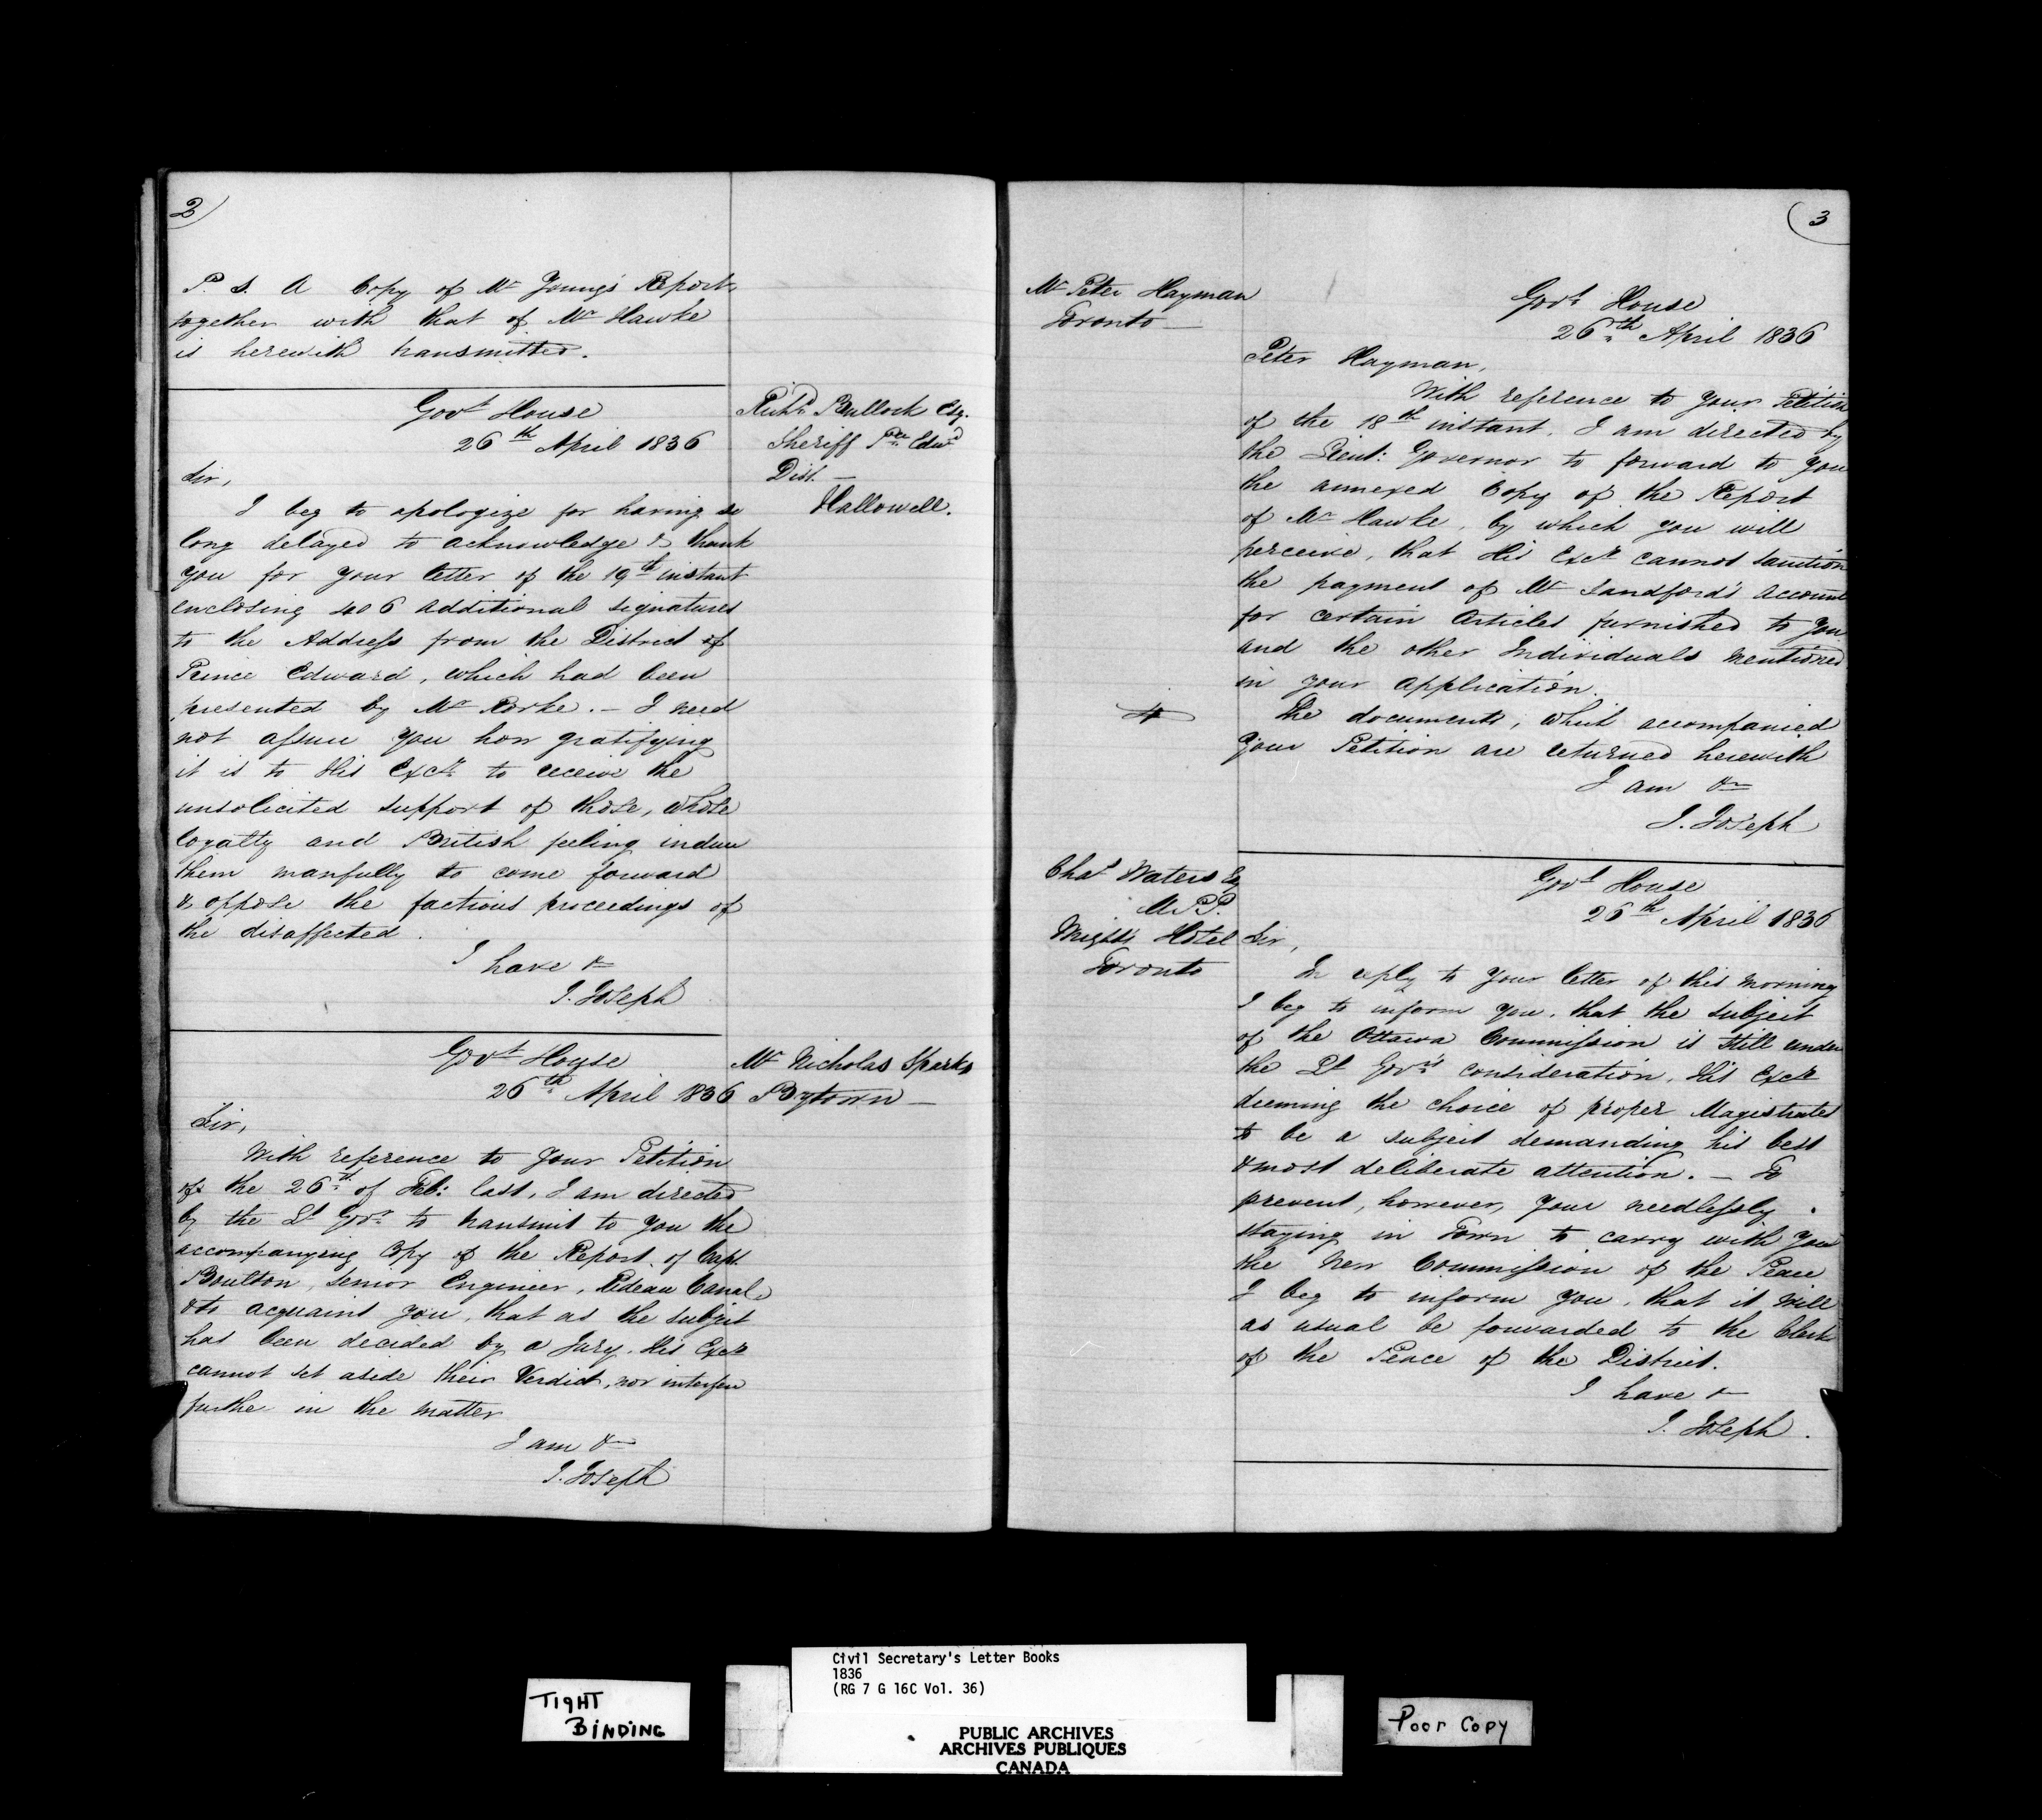 2)
P. S. A Copy of Mr Young's Report
together with that of Mr Hawke
is herewith transmitted.
Govt House
26th April 1836
Richd Bullock Esq.
Sheriff Pce Edwd
Dist. —
Hallowell.
Sir,
I beg to apologize for having so
long delayed to acknowledge & thank
you for your letter of the 19th instant
enclosing 406 additional signatures
to the Address from the District of
Prince Edward, which had been
presented by Mr Rorke. — I need
not assure you how gratifying
it is to His Excy to receive the
unsolicited support of those, whose
loyalty and British feeling induce
them manfully to come forward
& oppose the factious proceedings of
the disaffected.
I have &
J. Joseph
Govt House
26th April 1836
Mr Nicholas Sparks
Bytown —
Sir,
With reference to your Petition
of the 26th of Feb: last, I am directed
by the Lt Govr to transmit to you the
accompanying Copy of the Report of Capt.
Boulton, Senior Engineer, Rideau Canal,
& to acquaint you, that as the subject
has been decided by a Jury, His Excy
cannot set aside their Verdict, nor interfere
further in the matter
I am &
J. Joseph
(3
Mr Peter Hayman
Toronto —
Govt House
26th April 1836
Peter Hayman,
With reference to your Petition
of the 18th instant, I am directed by
the Lieut: Governor to forward to you
the annexed Copy of the Report
of Mr Hawke, by which you will
perceive, that His Excy cannot sanction
the payment of Mr Sandford's account
for certain Articles furnished to you
and the other Individuals mentioned
in your application.
The documents, which accompanied
your Petition are returned herewith
I am &
J. Joseph
Chas Waters Esq
M.P.P.
Hotel
Toronto
Govt House
26th April 1836
Sir,
In reply to your letter of this morning
I beg to inform you, that the subject
of the Ottawa Commission is still under
the Lt Govr's consideration, His Excy
deeming the choice of proper Magistrates
to be a subject demanding his best
& most deliberate attention. — To
prevent, however, your needlessly
staying in Town to carry with you
the New Commission of the Peace
I beg to inform you, that it will
as usual be forwarded to the Clerk
of the Peace of the District.
I have &
J. Joseph.
TIGHT
BINDING
Civil Secretary's Letter Books
1836
(RG 7 G 16C Vol. 36)
PUBLIC ARCHIVES
ARCHIVES PUBLIQUES
CANADA
Poor Copy